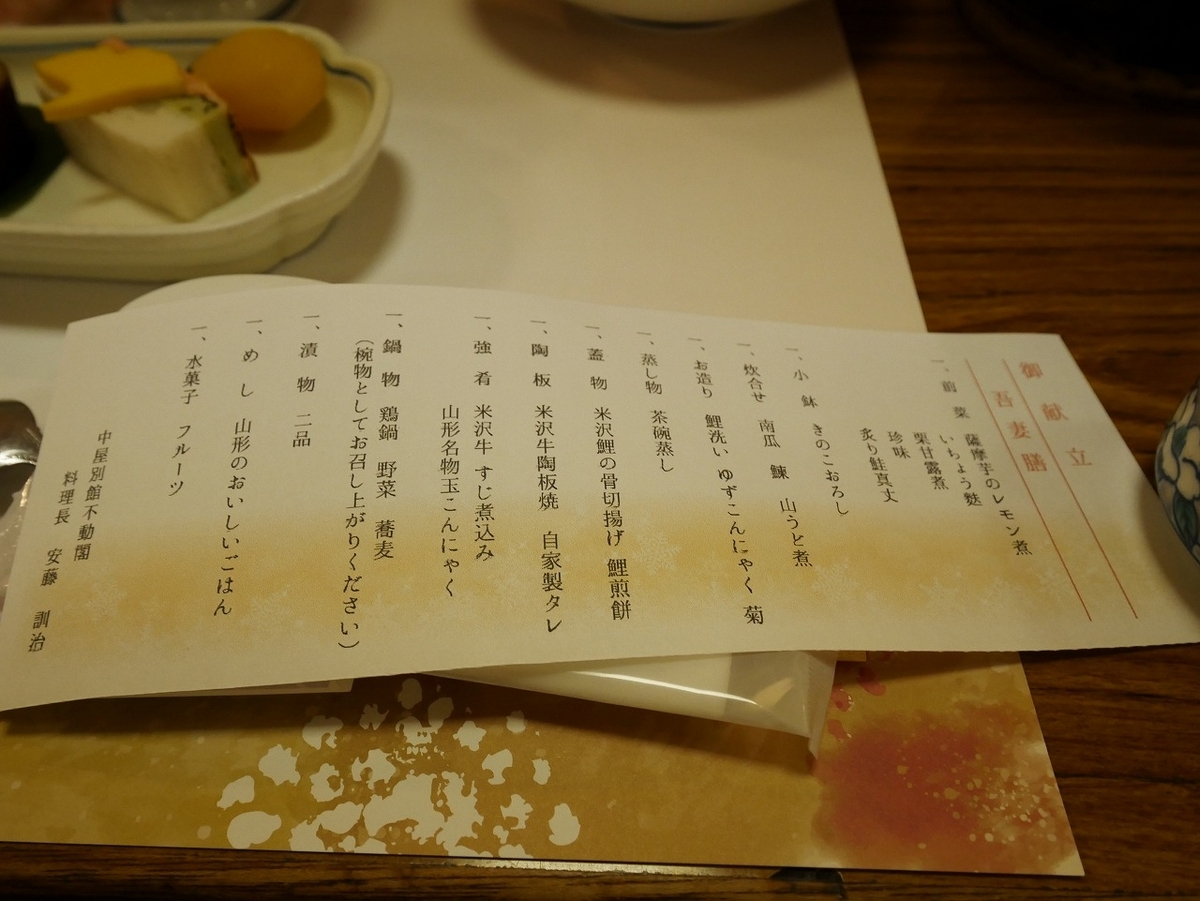 御献立
吾妻膳
一、前菜 薩摩芋のレモン煮
いちょう麩
栗甘露煮
珍味
炙り鮭真丈
一、小鉢 きのこおろし
一、炊合せ 南瓜 鰊 山うど煮
一、お造り 鯉洗い ゆずこんにゃく 菊
一、蒸し物 茶碗蒸し
一、蓋物 米沢鯉の骨切揚げ 鯉煎餅
一、陶板 米沢牛陶板焼 自家製タレ
一、強肴 米沢牛すじ煮込み
山形名物玉こんにゃく
一、鍋物 鶏鍋 野菜 蕎麦
(椀物としてお召し上がりください)
一、漬物 二品
一、めし 山形のおいしいごはん
一、水菓子 フルーツ
中屋別館不動閣
料理長 安藤 訓治